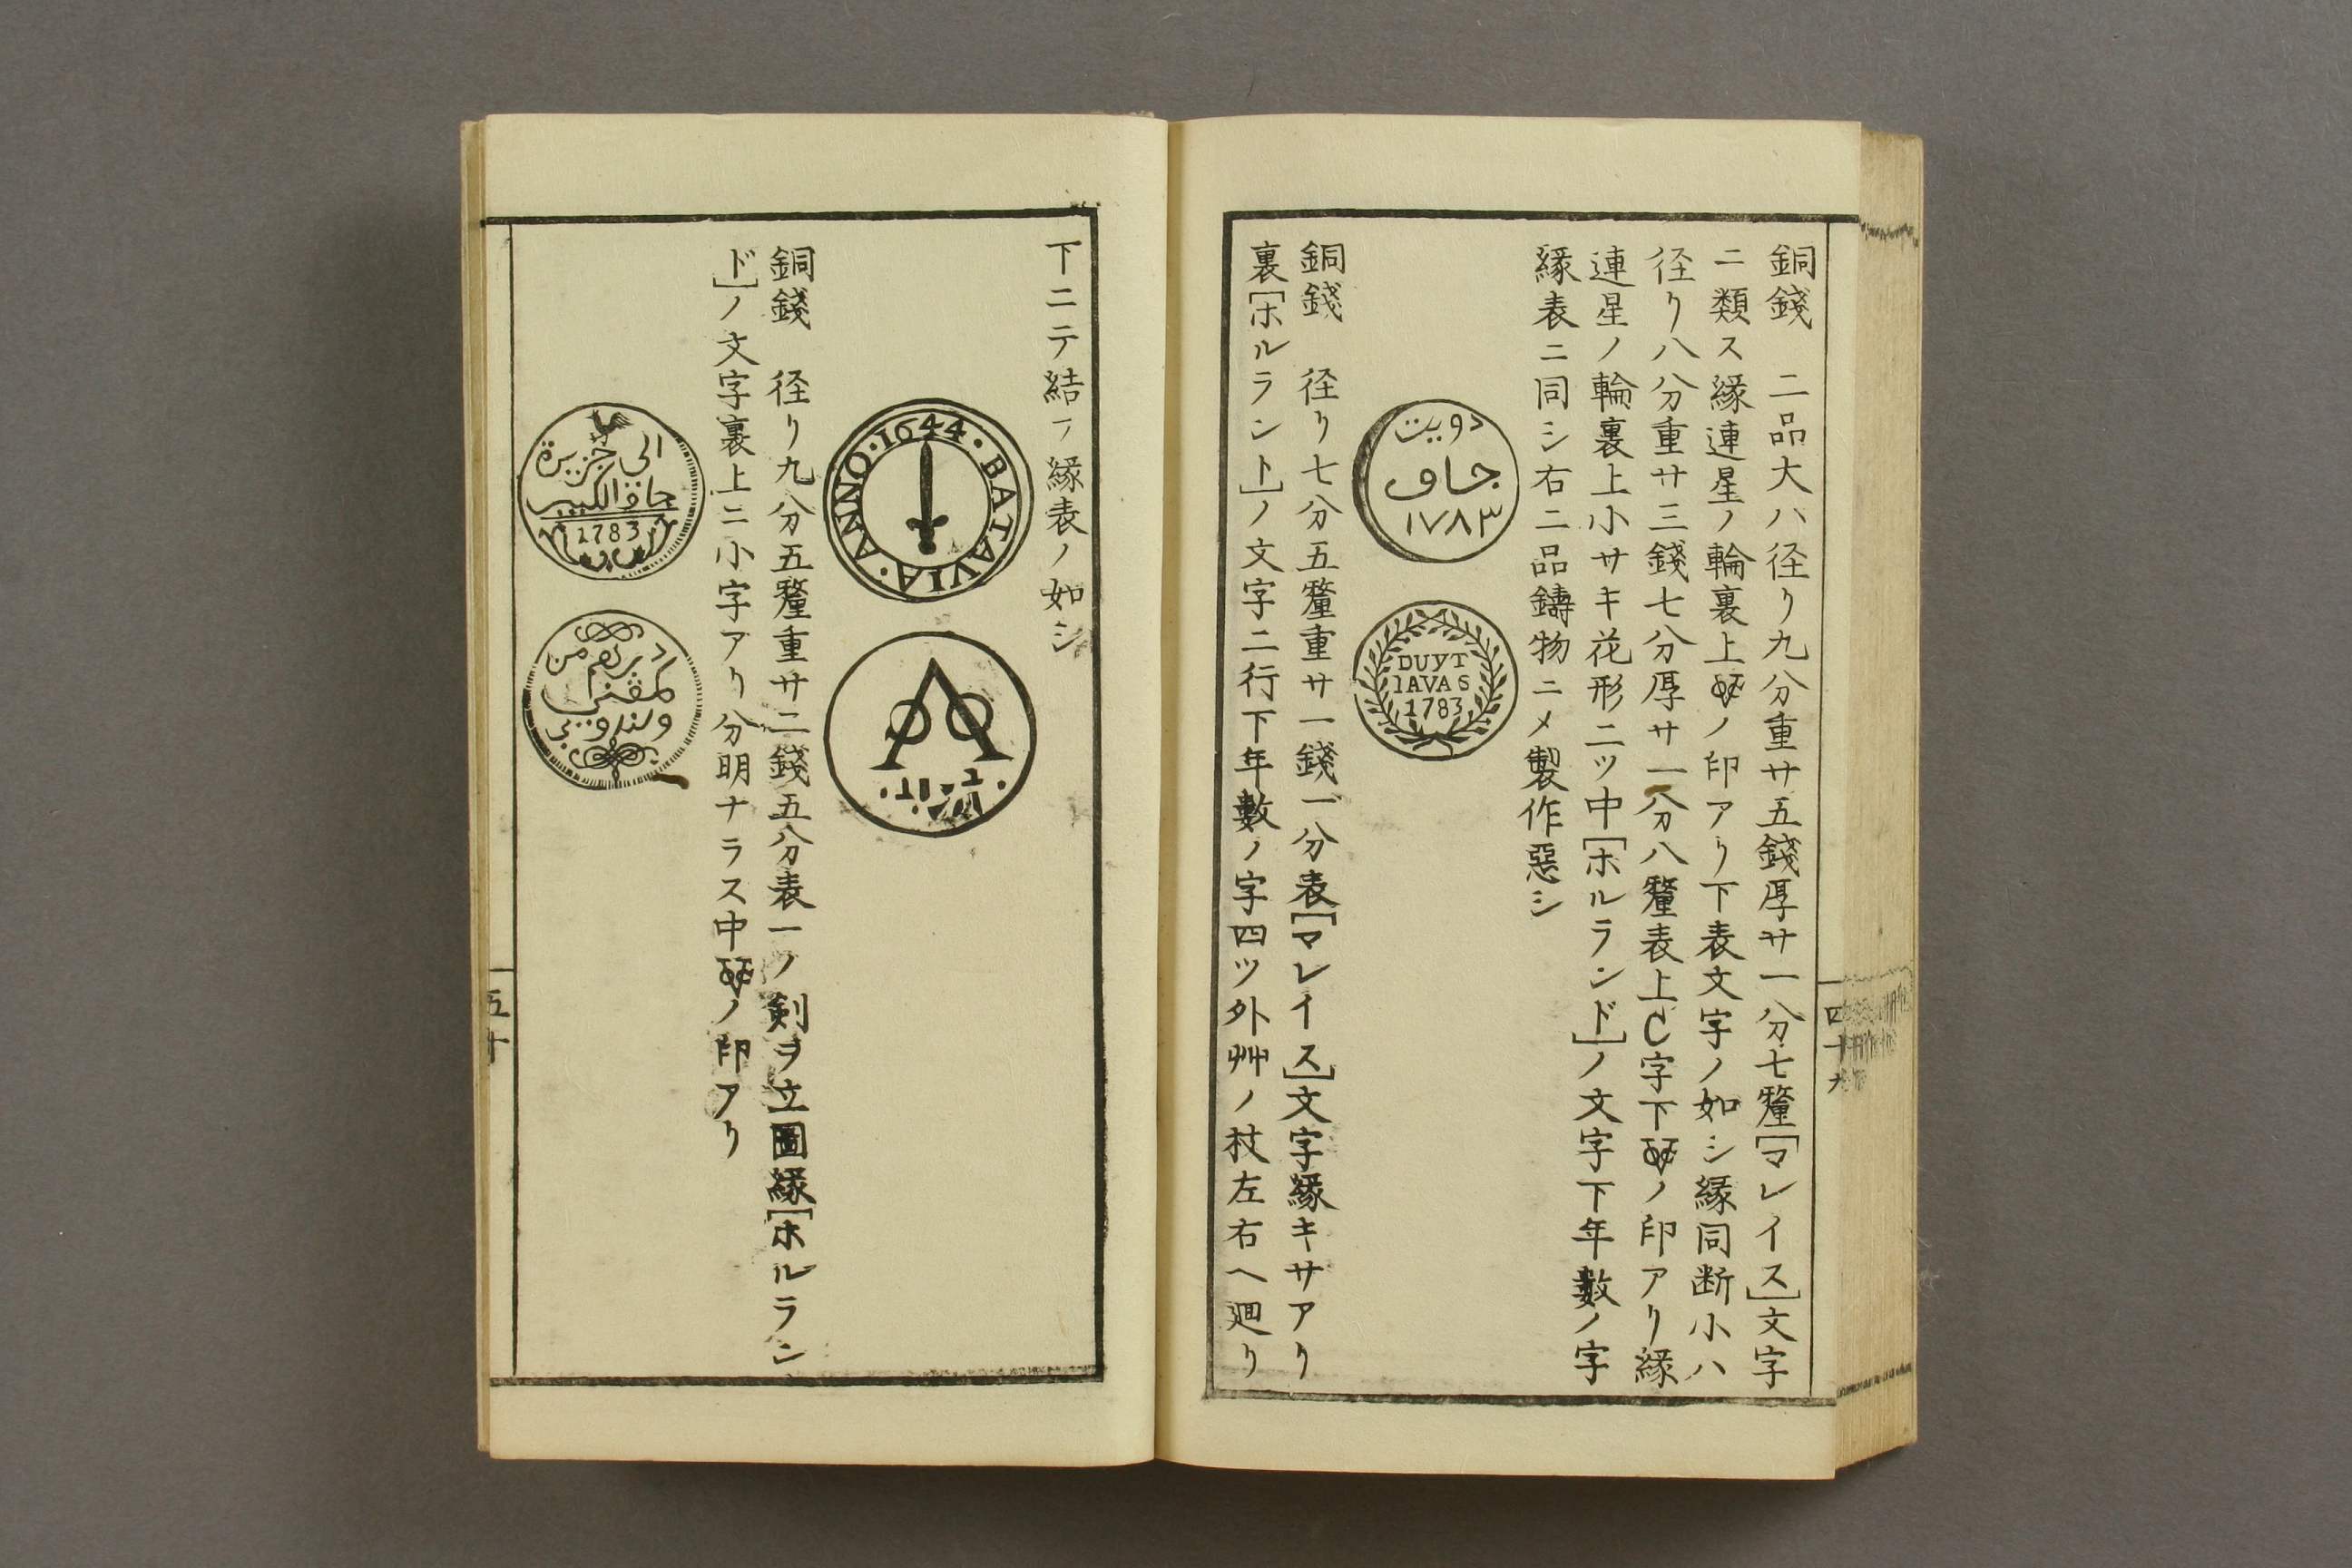 銅錢　二品大ハ径リ九分重サ五錢厚サ一分七釐[マレイス]文字
ニ類ス縁連星ノ輪裏上ノ印アリ下表文字ノ如シ縁同断小ハ
径リ八分重サ三錢七分厚サ一分八釐表上C字下ノ印アリ縁
連星ノ輪裏上小サキ花形二ツ中[ホルランド]ノ文字下年數ノ字
縁表ニ同シ右二品鑄物ニメ製作惡シ
دويت
جاو
١٧٨٣
DUYT
IAVAS
1783
銅錢　径リ七分五釐重サ一錢一分表[マレイス]文字縁キサアリ
裏[ホルラント]ノ文字二行下年數ノ字四ツ外艸ノ枝左右ヘ廻リ
四十九
下ニテ結フ縁表ノ如シ
BATAVIA·ANNO·1644·
銅錢　径リ九分五釐重サ二錢五分表一ノ剣ヲ立圖縁[ホルラン
ド]ノ文字裏上ニ小字アリ分明ナラス中ノ印アリ
الي جزيرة
جاو الكبير
1783
五十